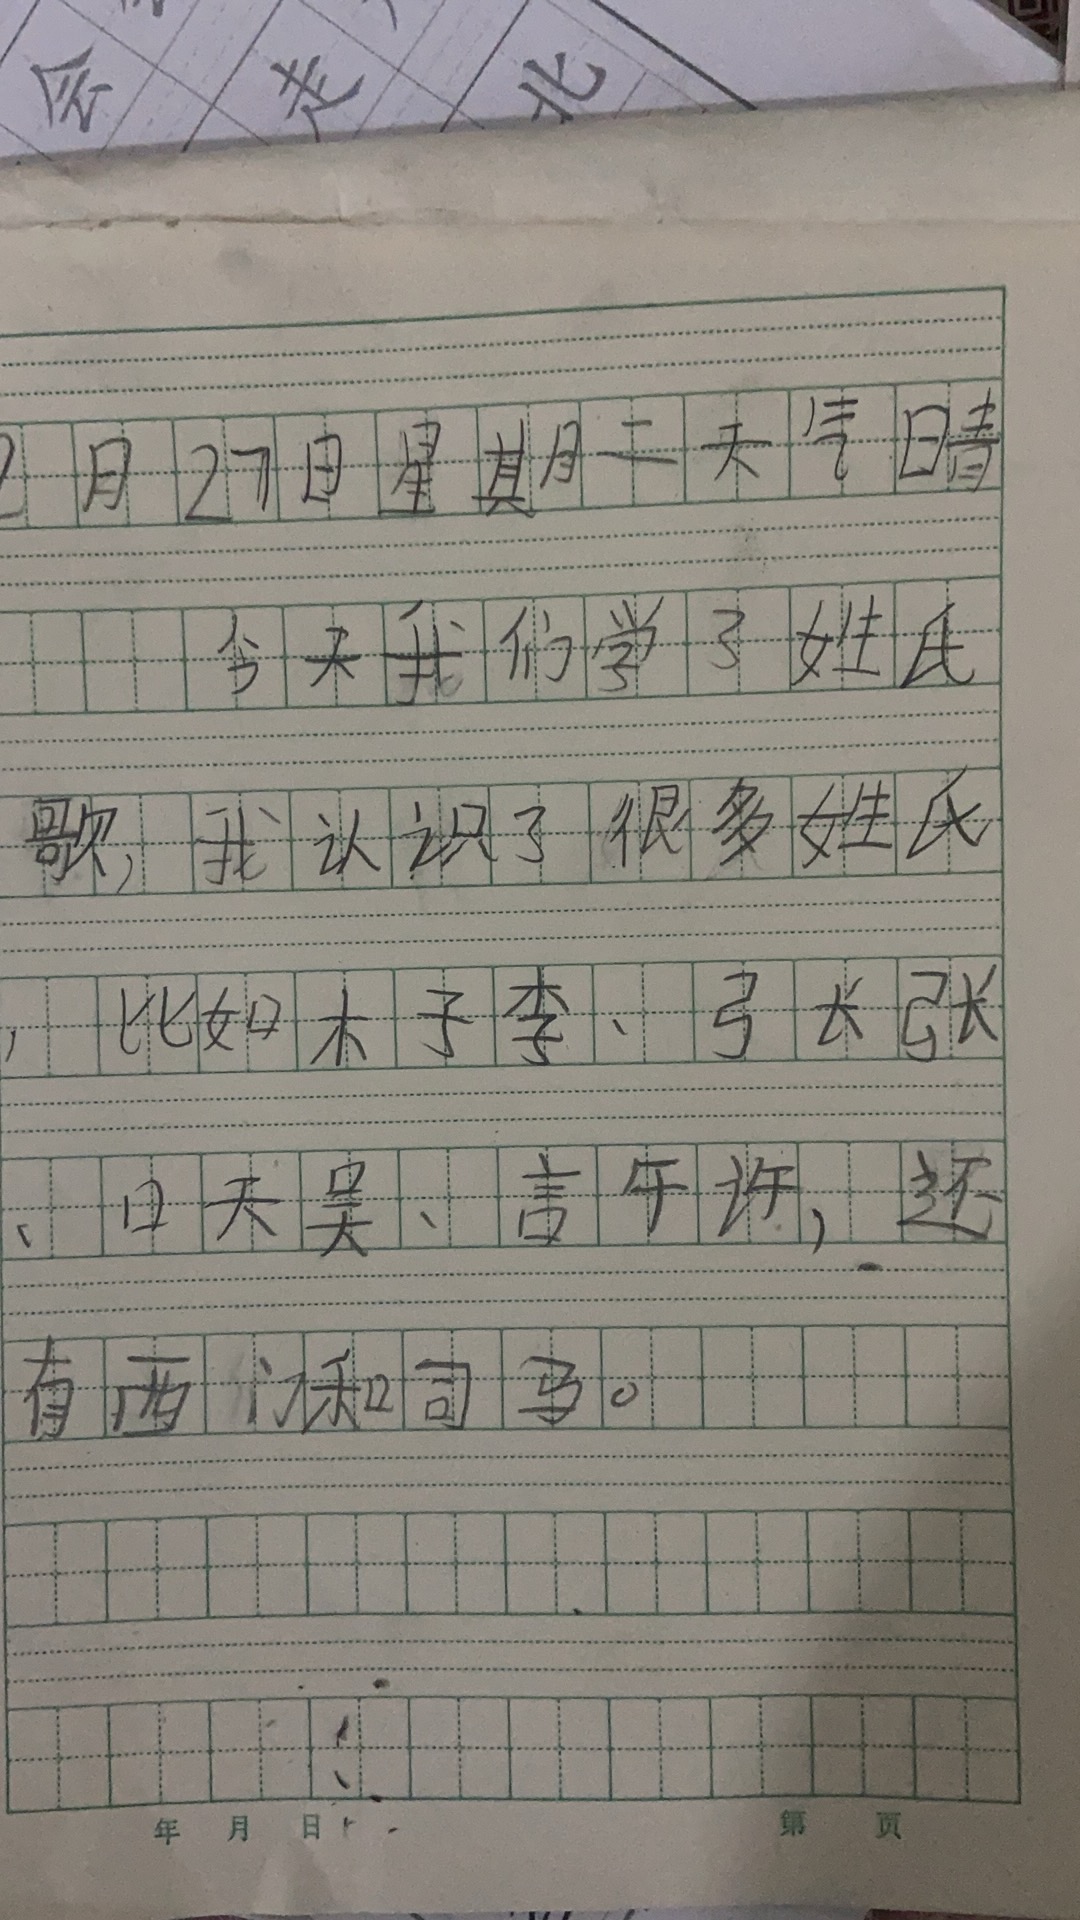 会 老 北
2月27日星期二天气晴
今天我们学了姓氏
歌,我认识了很多姓氏
,比如木子李、弓长张
、口天吴、言午许,还
有西门和司马。
年 月 日 第 页